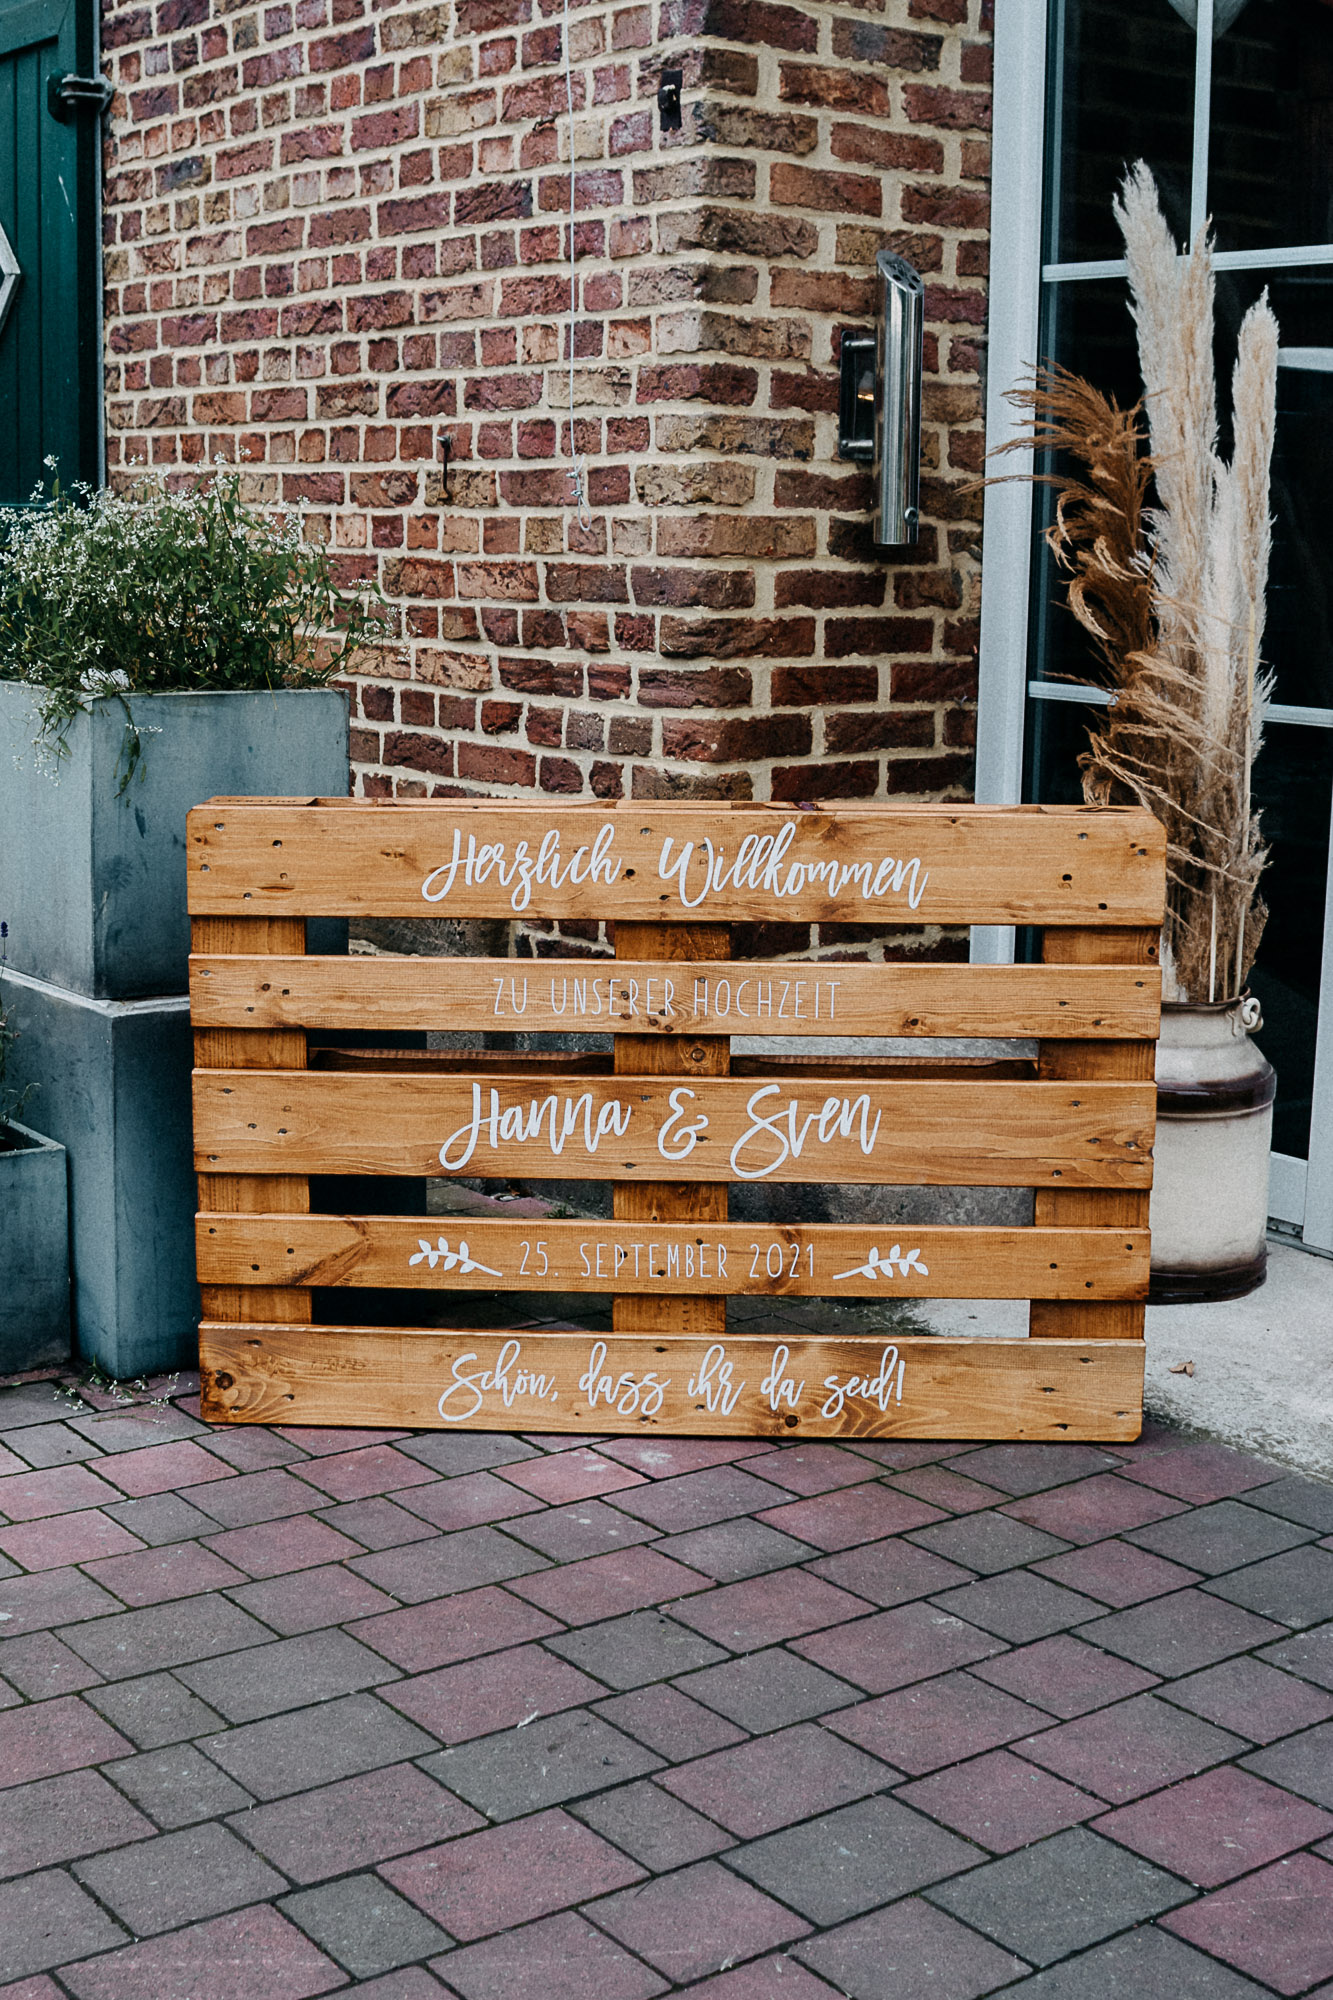 Herzlich Willkommen
ZU UNSERER HOCHZEIT
Hanna & Sven
25. SEPTEMBER 2021
Schön, dass ihr da seid!